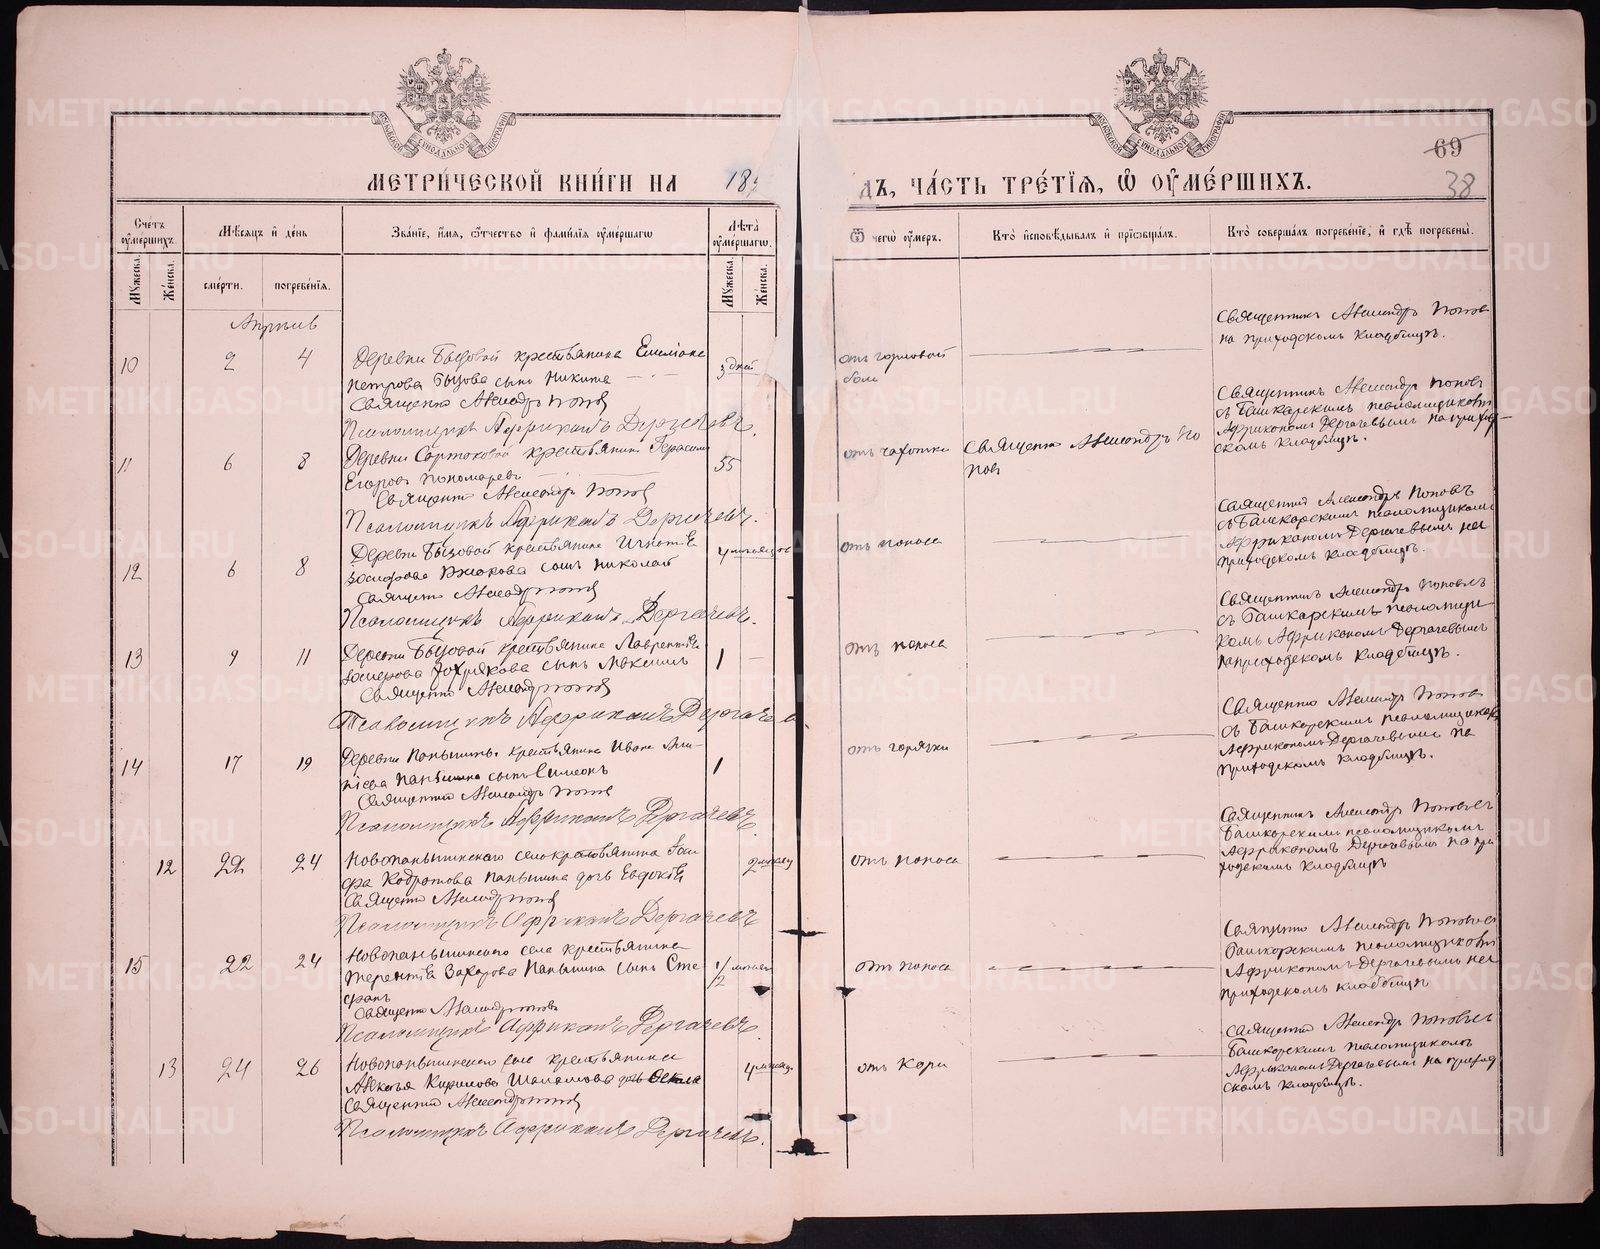 МЕТРИ́ЧЕСКОЙ КНИ́ГИ НА 18
ДЪ, ЧА́СТЬ ТРЕ́ТІѦ, Ѽ ОУМЕ́РШИХЪ.
69
38
Сче́тъ оумершихъ.
Мꙋжеска.
Женска.
Мѣсѧцъ и день
сме́рти.
погребе́нїѧ.
Зва́нїе, и́мѧ, ѻтчество и фами́лїѧ оумершагѡ
Лѣта̀ оумершагѡ.
Мꙋжеска.
Женска.
Ѿ чегѡ оумеръ.
Кто̀ исповѣдывалъ и прїѡбщалъ.
Кто̀ соверша́лъ погребе́нїе, и гдѣ̀ погребены̀.
Апрѣль
10 2 4
Деревни Бызовой крестьянина
Петрова Бызова сынъ Никита
Священникъ Александръ Поповъ
Псаломщикъ Африканъ Дергачевъ.
3 дней
отъ горловой боли
Священникъ Александръ Поповъ
на приходскомъ кладбищѣ.
11 6 8
Деревни крестьянинъ Герасимъ
Егоровъ Пономаревъ
Священникъ Александръ Поповъ
Псаломщикъ Африканъ Дергачевъ.
55
отъ чахотки
Священникъ Александръ По
повъ
Священникъ Александръ Поповъ
съ Башкарскимъ псаломщикомъ
Африканомъ Дергачевымъ на приход-
скомъ кладбищѣ.
12 6 8
Деревни Бызовой крестьянина Игнатія
сынъ Николай
Священникъ Александръ Поповъ
Псаломщикъ Африканъ Дергачевъ.
4 мѣсяцовъ
отъ поноса
Священникъ Александръ Поповъ
съ Башкарскимъ псаломщикомъ
Африканомъ Дергачевымъ на
приходскомъ кладбищѣ.
13 9 11
Деревни Бызовой крестьянина Лаврентія
сынъ Максимъ
Священникъ Александръ Поповъ
Псаломщикъ Африканъ Дергачевъ.
1 —
отъ поноса
Священникъ Александръ Поповъ
съ Башкарскимъ псаломщи-
комъ Африканомъ Дергачевымъ
на приходскомъ кладбищѣ.
14 17 19
Деревни Паньшиной крестьянина Ивана
Паньшина сынъ Симеонъ
Священникъ Александръ Поповъ
Псаломщикъ Африканъ Дергачевъ.
1
отъ горячки
Священникъ Александръ Поповъ
съ Башкарскимъ псаломщикомъ
Африканомъ Дергачевымъ на
приходскомъ кладбищѣ.
12 22 24
Новопаньшинскаго села крестьянина
Паньшина дочь Евдокія
Священникъ Александръ Поповъ
Псаломщикъ Африканъ Дергачевъ
2 мѣсяц
отъ поноса
Священникъ Александръ Поповъ съ
Башкарскимъ псаломщикомъ
Африканомъ Дергачевымъ на при
ходскомъ кладбищѣ
15 22 24
Новопаньшинскаго села крестьянина
Терентія Захарова Паньшина сынъ Сте-
фанъ
Священникъ Александръ Поповъ
Псаломщикъ Африканъ Дергачевъ.
1/2 мѣсяц
отъ поноса
Священникъ Александръ Поповъ съ
Башкарскимъ псаломщикомъ
Африканомъ Дергачевымъ на
приходскомъ кладбищѣ
13 24 26
Новопаньшинскаго села крестьянина
Алексѣя Кирилова дочь
Священникъ Александръ Поповъ
Псаломщикъ Африканъ Дергачевъ.
4 мѣсяц
отъ кори
Священникъ Александръ Поповъ съ
Башкарскимъ псаломщикомъ
Африканомъ Дергачевымъ на приход
скомъ кладбищѣ.
METRIKI.GASO-URAL.RU